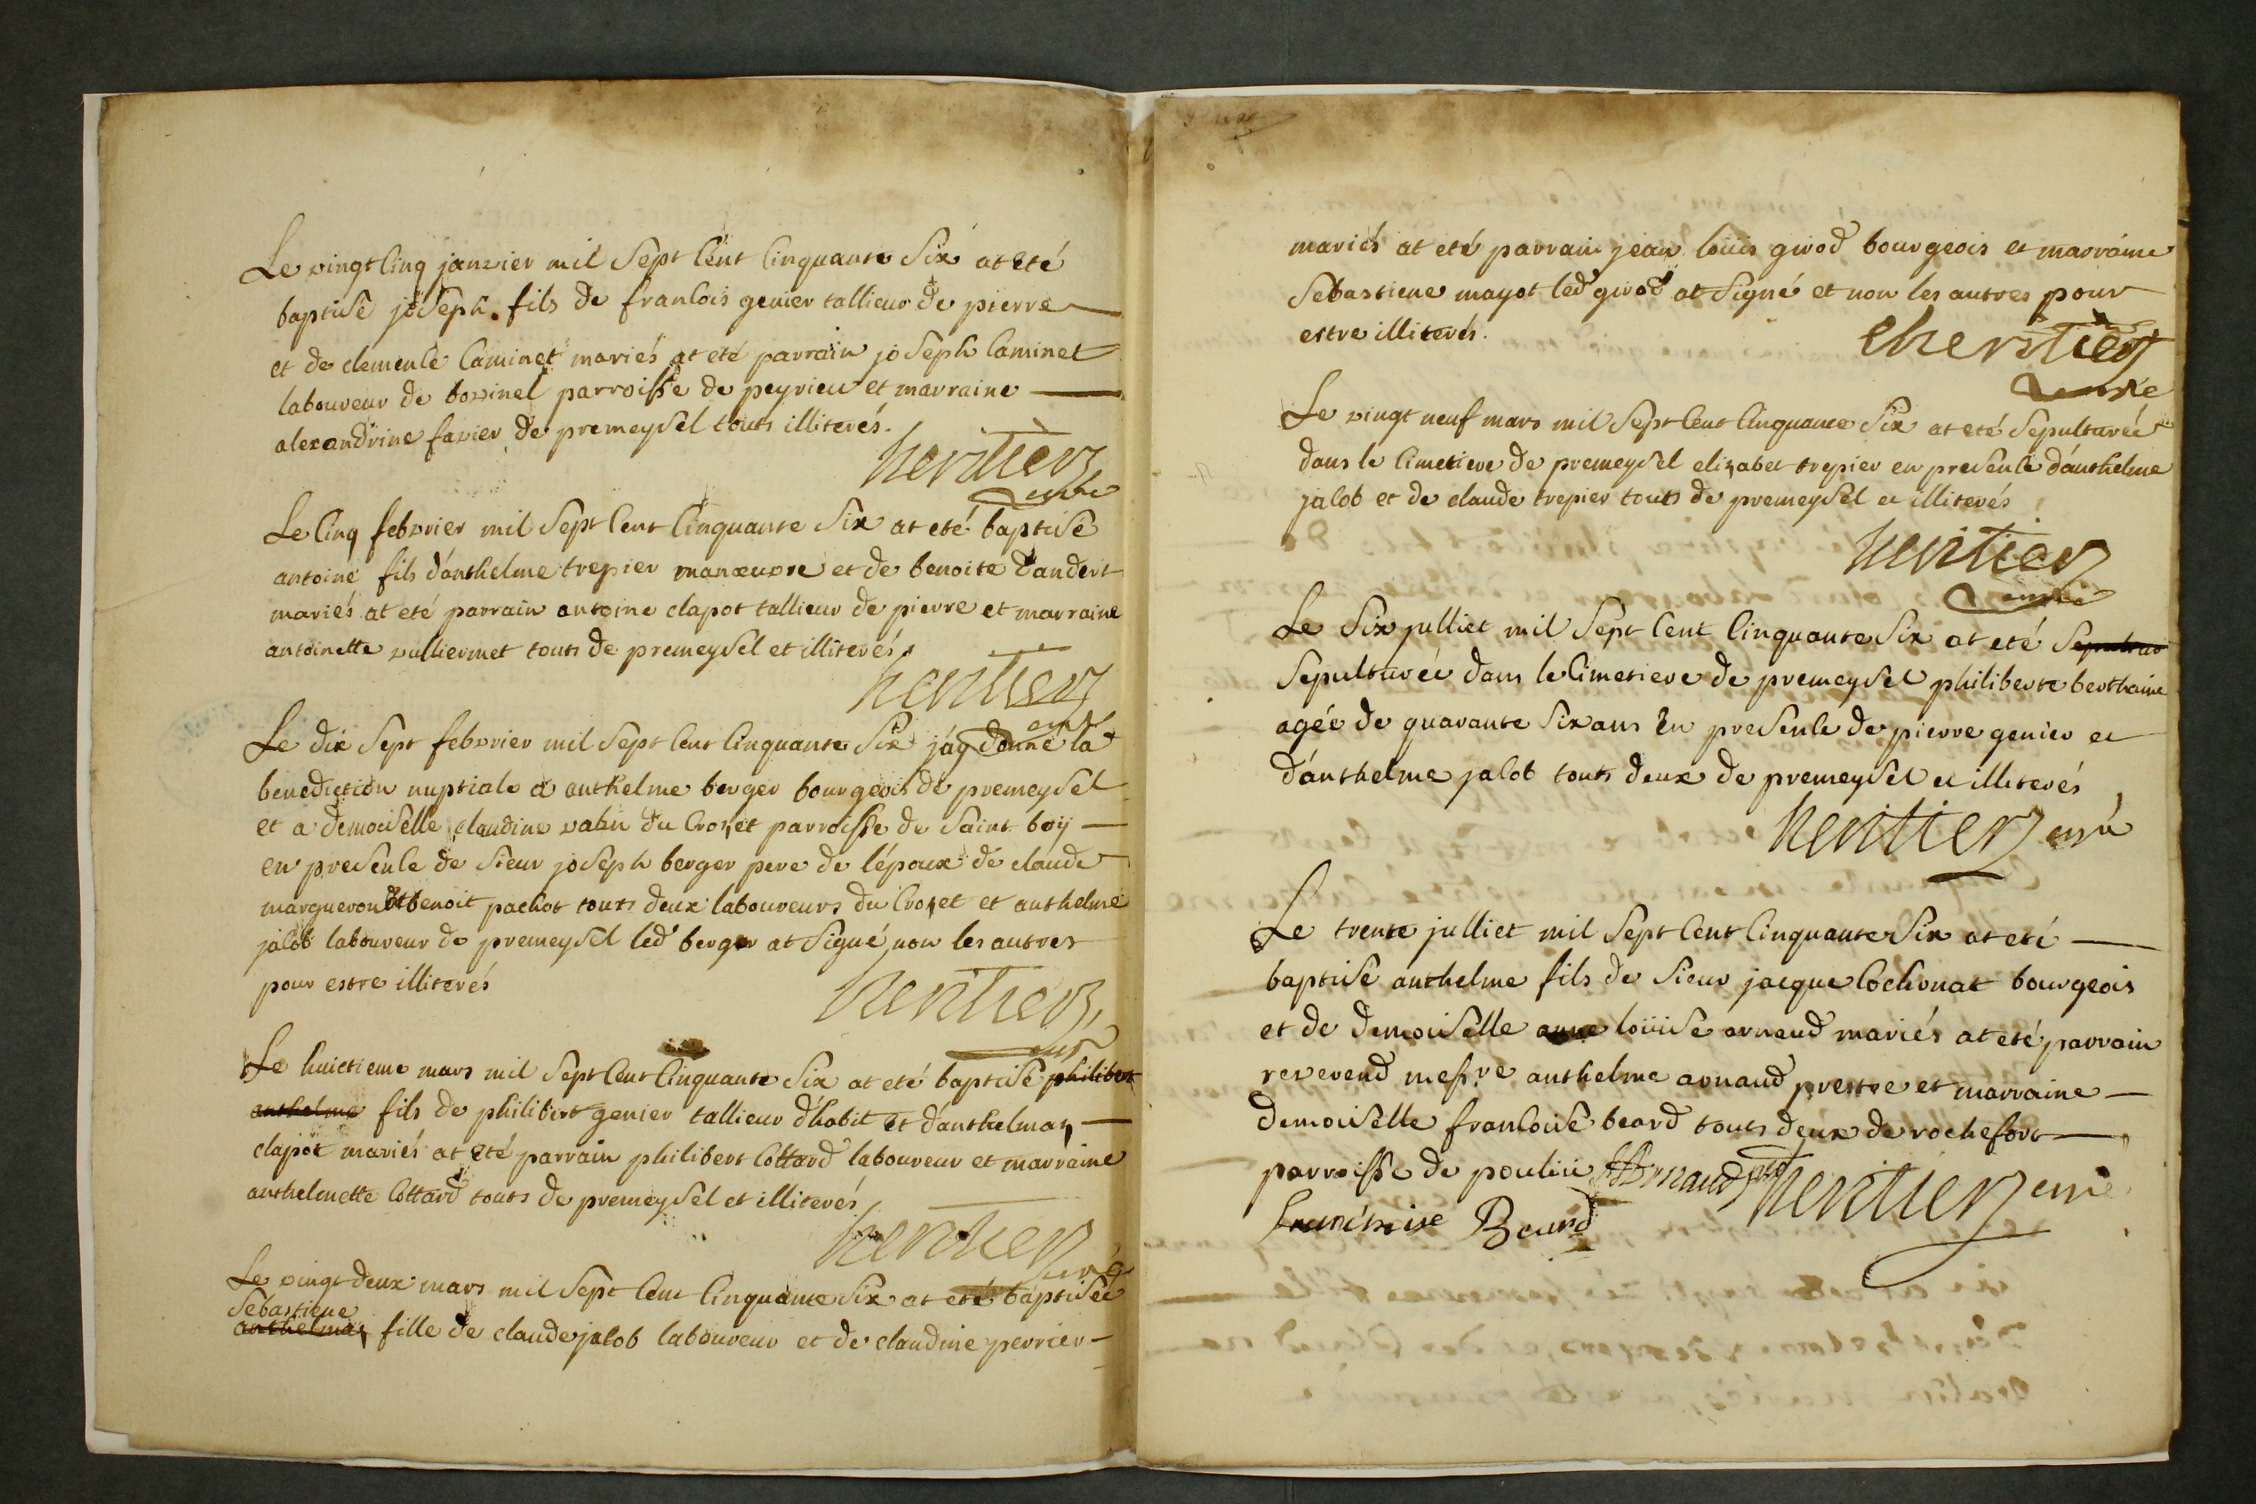 Le vingt cinq janvier mil sept cent cinquante six at eté
baptisé joseph fils de francois genier tallieur de pierre
et de clemence caminet mariés at eté parrain joseph caminet
laboureur de bovinel parroisse de peyrieu et marraine
alexandrine favier de premeysel touts illiterés.
heritier
curé
Le cinq febvrier mil sept cent cinquante six at eté baptisé
antoine fils d'anthelme trepier manœuvre et de benoite dandert
mariés at eté parrain antoine clapot tallieur de pierre et marraine
antoinette vulliermet touts de premeysel et illiterés.
heritier
curé
Le dix sept febvrier mil sept cent cinquante six j'ay donné la
benediction nuptiale a anthelme berger bourgeois de premeysel
et a demoiselle claudine vabin du crozet parroisse de saint boij
en presence de sieur joseph berger pere de l'époux de claude
margueron et benoit pachot touts deux laboureurs du crozet et anthelme
jacob laboureur de premeysel led berger at signé non les autres
pour estre illiterés
heritier
curé
Le huictieme mars mil sept cent cinquante six at eté baptisé philibert
anthelme fils de philibert genier tallieur d'habit et d'anthelmaz
clapot mariés at eté parrain philibert cottard laboureur et marraine
anthelmette cottard touts de premeysel et illiterés
heritier
curé
Le vingt deux mars mil sept cent cinquante six at eté baptisée
sebastiene
anthelmaz fille de claude jacob laboureur et de claudine perrier
mariés at eté parrain jean loüis girod bourgeois et marraine
sebastiene mayot led girod at signé et non les autres pour
estre illiterés.
heritier
curé
Le vingt neuf mars mil sept cent cinquante six at eté sepulturée
dans le cimetiere de premeysel elizabet trepier en presence d'anthelme
jacob et de claude trepier touts de premeysel et illiterés
heritier
curé
Le six julliet mil sept cent cinquante six at eté sepultur
sepulturée dans le cimetiere de premeysel philiberte berthaine
agée de quarante six ans en presence de pierre genier et
d'anthelme jacob touts deux de premeysel et illiterés
heritier curé
Le trente julliet mil sept cent cinquante six at eté
baptisé anthelme fils de sieur jacque cochonat bourgeois
et de demoiselle anne loüise arnaud mariés at eté parrain
reverend mess.re anthelme arnaud prestre et marraine
demoiselle francoise beard touts deux de rochefort
parroisse de poulieu Arnaud ptre heritier curé
francoise Beard